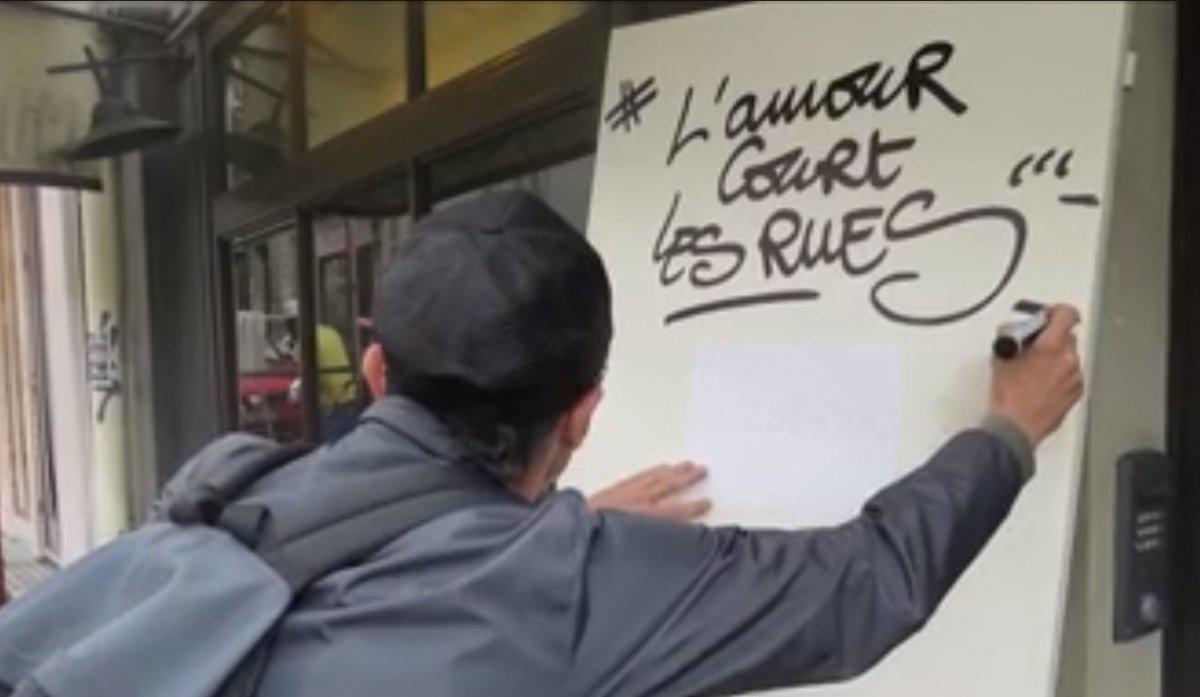 # L'amour
Court
Les Rues